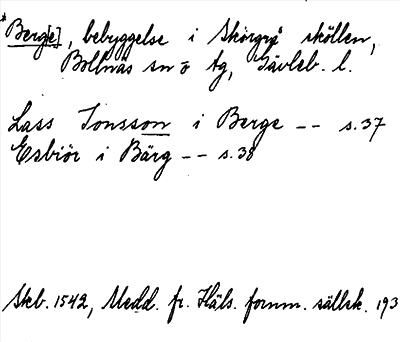 *Berg[e], bebyggelse i Skörgrp sköllen,
Bollnäs sn o tg, Gävleb. l.
Lass Jonsson i Berge -- s.37
Esbiör i Bärg -- s.38
Skb. 1542, Medd. fr. Häls. fornm. sällsk. 193